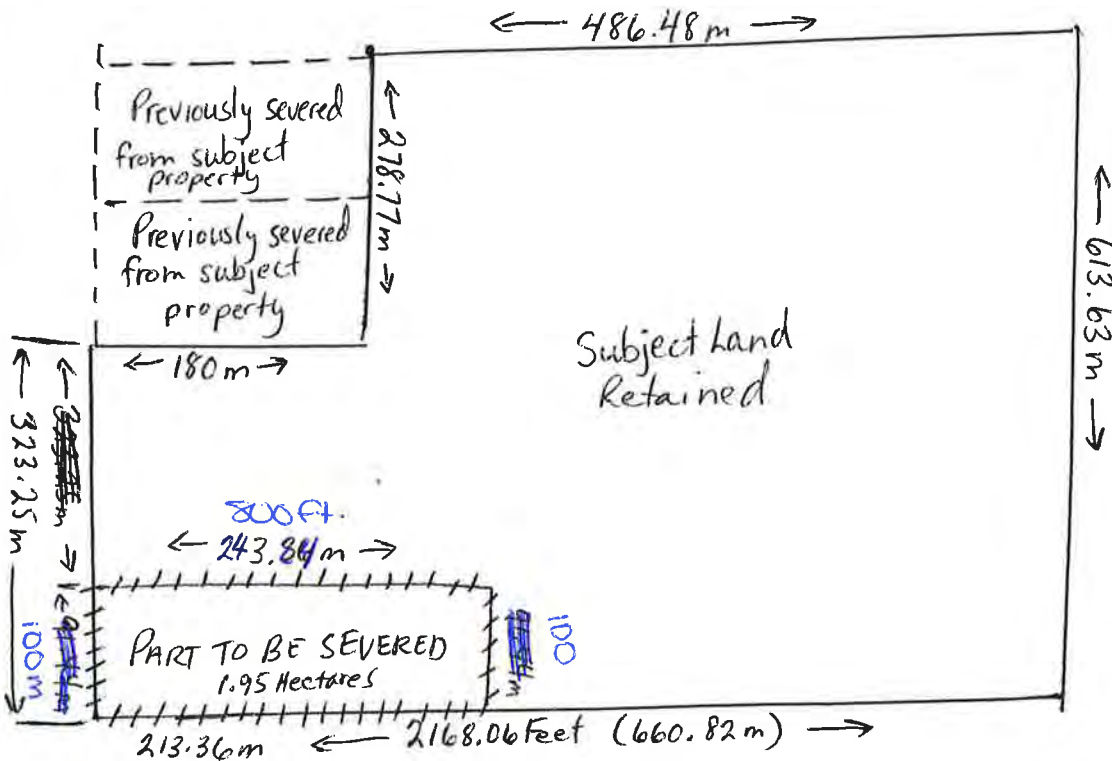 486.48m
Previously severed
from subject
property
278.77m
Previously severed
from subject
property
613.63m
180m
Subject Land
Retained
323.25m
800ft.
243.84m
PART TO BE SEVERED
1.95 Hectares
100m
100
m
213.36m
2168.06 Feet (660.82m)